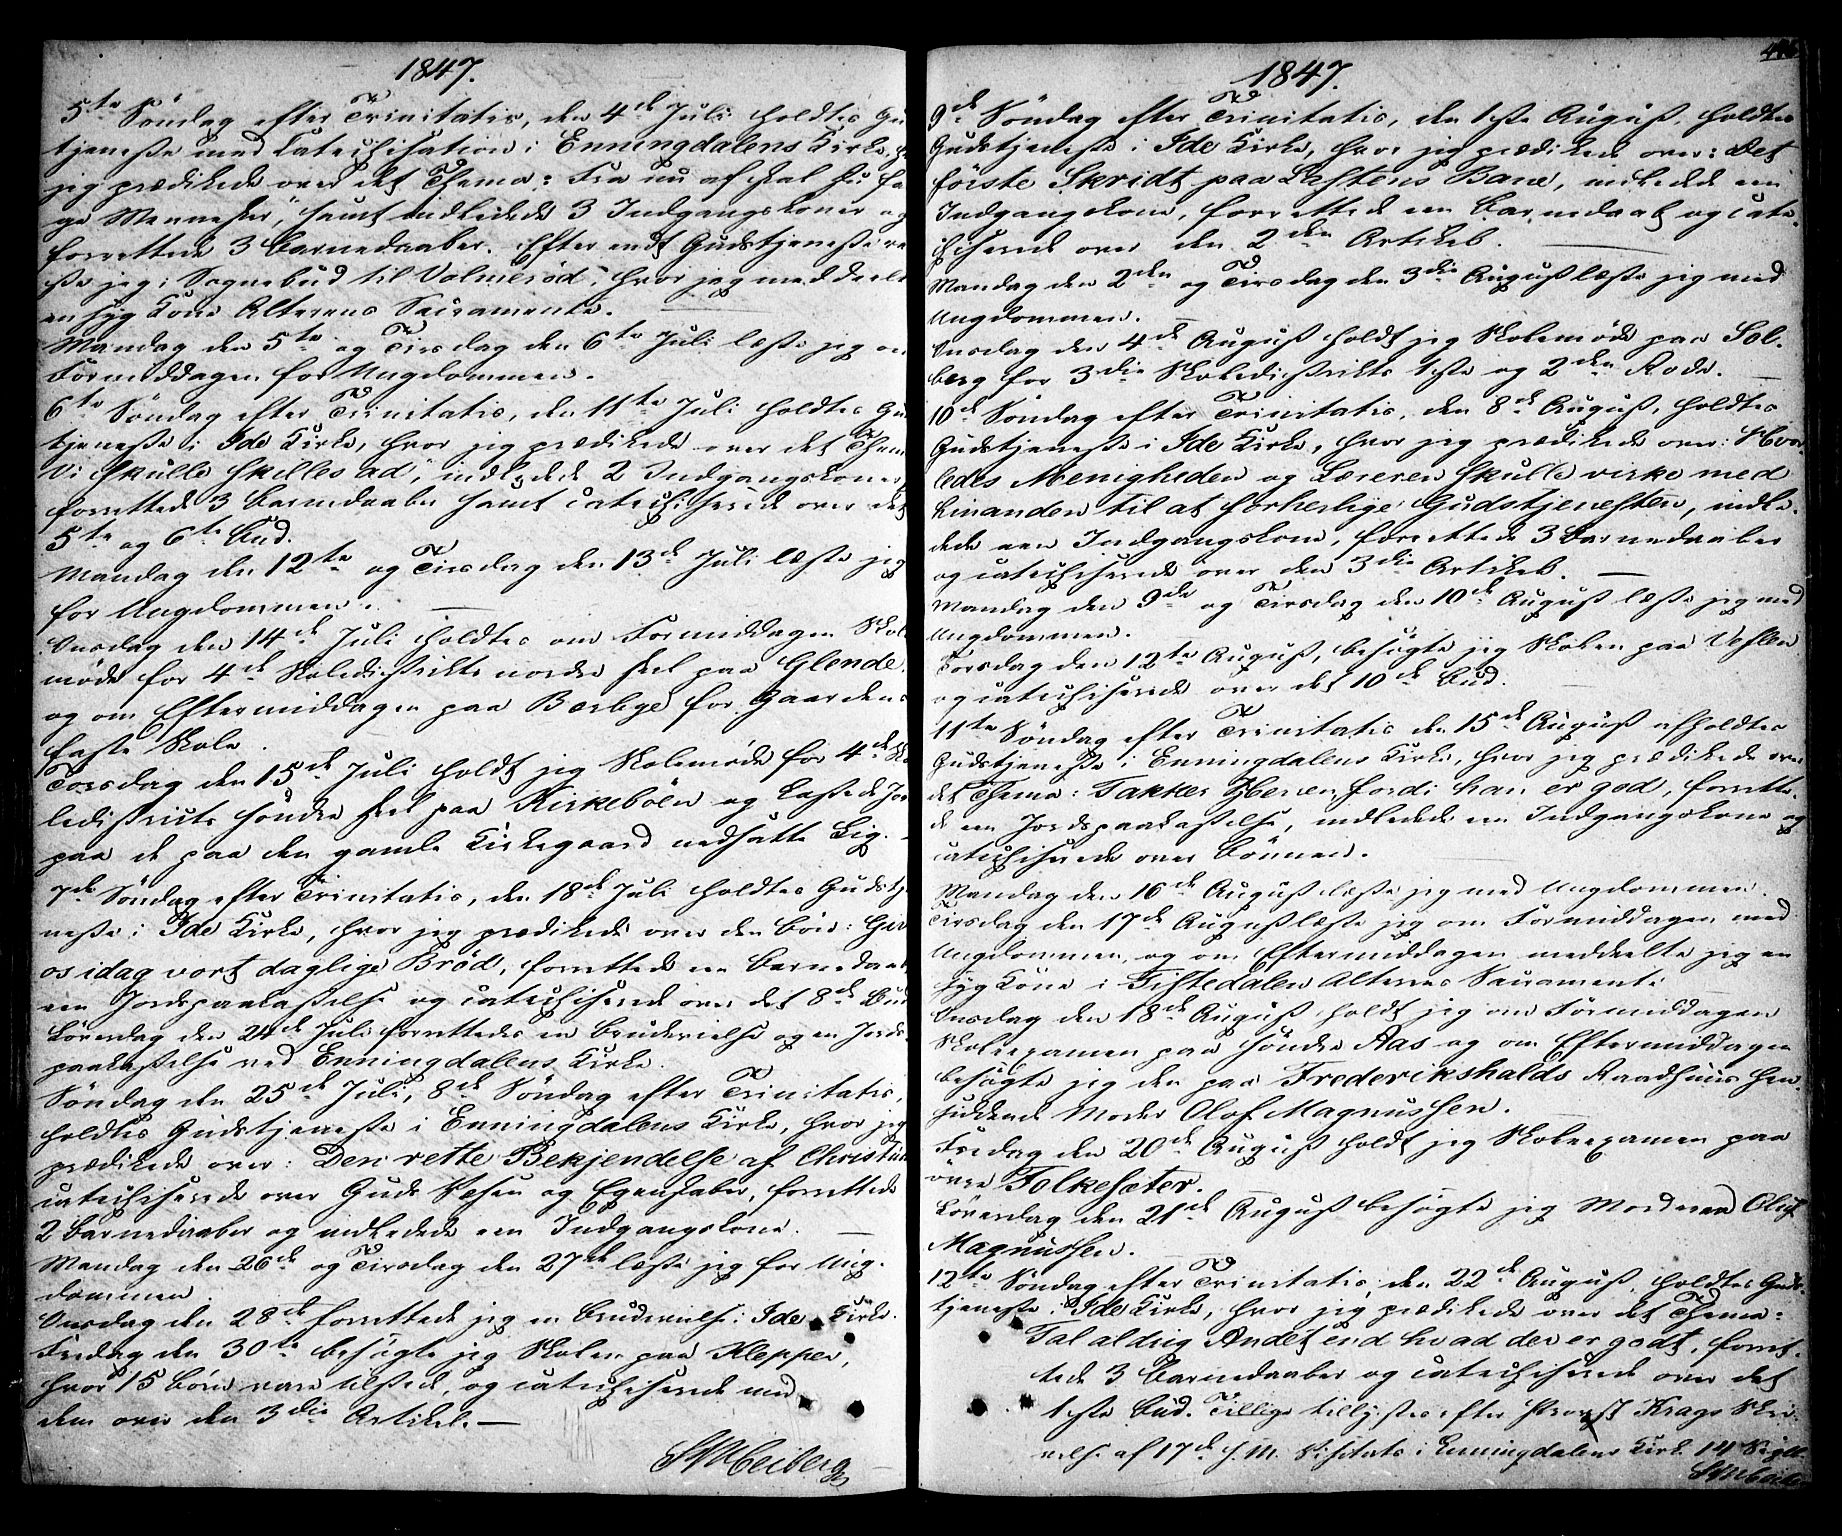 1847.
5te Söndag efter Trinitatis, den 4de Juli holdtes Gu
tjeneste med Catechisation i Enningdalens Kirke,
jeg prædikede over det Thema: Fra nu af skal du fa
ge Mennesker, samt indledede 3 Indgangskoner og
forrettede 3 Barnedaaber. Efter endt Gudstjeneste re
ste jeg i Sognebud til Volmeröd, hvor jeg meddeelte
en syg Kone Alterens Sacramente.
Mandag den 5te og Tirsdag den 6te Juli læste jeg om
Formiddagen for Ungdommen.
6te Söndag efter Trinitatis, den 11te Juli holdtes Gu
tjeneste i Ide Kirke, hvor jeg prædikede over det Them
Vi skulle skilles ad, indledede 2 Indgangskoner,
forrettede 3 Barnedaaber samt catechiserede over det
5te og 6te Bud.
Mandag den 12te og Tirsdag den 13de Juli læste jeg
for Ungdommen.
Onsdag den 14de Juli holdtes om Formiddagen Skole
möde for 4de Skoledistrikts nordre Deel paa Glende
og om Eftermiddagen paa Berbye for Gaardens
faste Skole.
Torsdag den 15de Juli holdt jeg Skolemöde for 4de Sko
ledistricts söndre Deel paa Kirkeböen og kastede Jord
paa de paa den gamle Kirkegaard nedsatte Lig.
7de Söndag efter Trinitatis, den 18de Juli holdtes Gudstje
neste i Ide Kirke, hvor jeg prædikede over den Bön: Giv
os idag vort daglige Bröd, forrettede en Barnedaab,
een Jordspaakastelse og catechiserede over det 8de Bud
Löverdag den 24de Juli forrettedes en Brudevielse og en Jords
paakastelse ved Enningdalens Kirke.
Söndag den 25de Juli, 8de Söndag efter Trinitatis,
holdtes Gudstjeneste i Enningdalens Kirke, hvor jeg
prædikede over: Den rette Bekjendelse af Christus
catechiserede over Guds Væsen og Egenskaber, forrettede
2 Barnedaaber og indledede een Indgangskone.
Mandag den 26de og Tirsdag den 27de læste jeg for Ung-
dommen.
Onsdag den 28de forrettede jeg en Brudevielse i Ide Kirke.
Fredag den 30te besögte jeg Skolen paa Klepper,
hvor 15 Börn vare tilstede, og catechiserede med
dem over den 3die Artikel.
Heiberg
1847.
9de Söndag efter Trinitatis, den 1ste August, holdtes
Gudstjeneste i Ide Kirke, hvor jeg prædikede over: Det
förste Skridt paa Lastens Bane, indledede een
Indgangskone, forrettede een Barnedaab og cate-
chiserede over den 2den Artikel.
Mandag den 2den og Tirsdag den 3die August læste jeg med
Ungdommen.
Onsdag den 4de August holdt jeg Skolemöde paa Sol-
berg for 3die Skoledistrikts 1ste og 2den Rode.
10de Söndag efter Trinitatis, den 8de August, holdtes
Gudstjeneste i Ide Kirke, hvor jeg prædikede over: Hvor-
ledes Menigheden og Læreren skulle virke med
hinanden til at forherlige Gudstjenesten, indle-
dede een Indgangskone, forrettede 3 Barnedaaber
og catechiserede over den 3die Artikel.
Mandag den 9de og Tirsdag den 10de August læste jeg med
Ungdommen.
Torsdag den 12te August, besögte jeg Skolen paa Vestlen
og catechiserede over det 10de Bud.
11te Söndag efter Trinitatis den 15de August afholdtes
Gudstjeneste i Enningdalens Kirke, hvor jeg prædikede over
det Thema: Takker Herren fordi han er god, forrette-
de een Jordspaakastelse, indledede en Indgangskone og
catechiserede over Bönnen.
Mandag den 16de August læste jeg med Ungdommen.
Tirsdag den 17de August læste jeg om Formiddagen med
Ungdommen, og om Eftermiddagen meddeelte jeg en
syg Kone i Tistedalen Alterens Sacramente
Onsdag den 18de August holdt jeg om Formiddagen
Skoleexamen paa söndre Aas og om Eftermiddagen
besögte jeg den paa Frederikshalds Raadhuus hen-
siddende Morder Olof Magnussen.
Fredag den 20de August holdt jeg Skoleexamen paa
övre Folkesæter.
Löverdag den 21de August besögte jeg Morderen Oluf
Magnussen.
12te Söndag efter Trinitatis, den 22de August, holdtes Guds-
tjeneste i Ide Kirke, hvor jeg prædikede over det Thema:
Tal aldrig Andet end hvad der er godt, forret-
tede 3 Barnedaaber og catechiserede over det
1ste Bud. Tillige tillystes efter Provst Krags Skri-
velse af 17de d. M. Visitats i Enningdalens Kirke